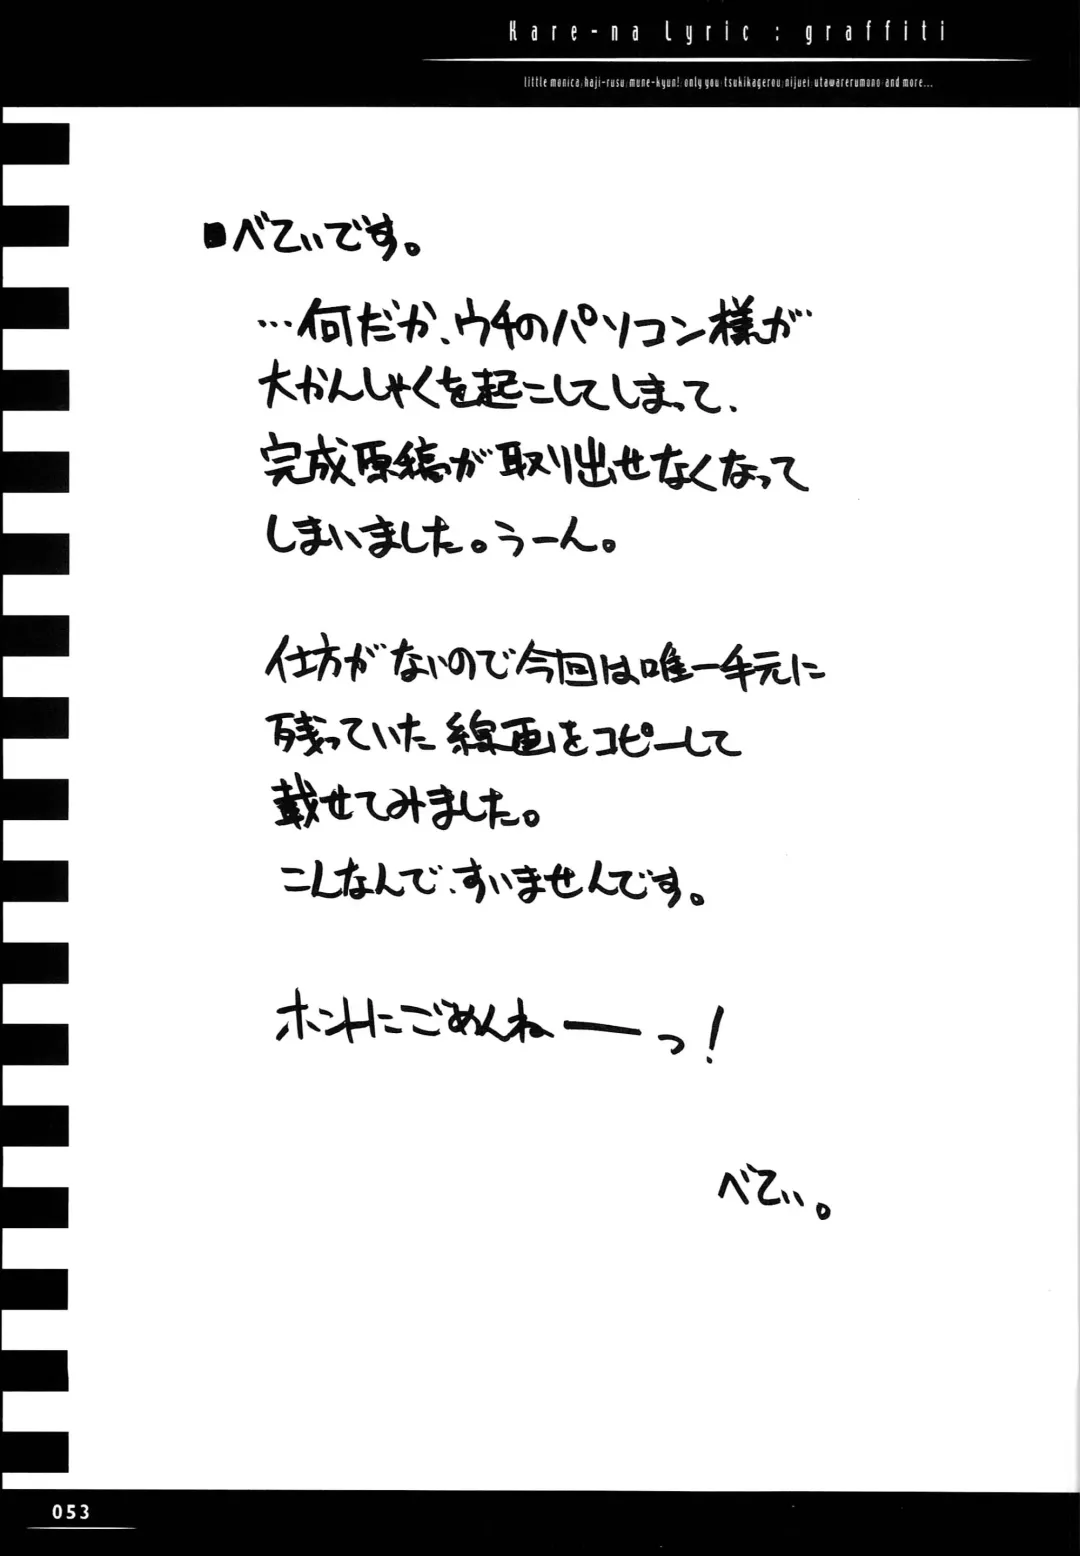 Kare-na Lyric : graffiti
little monica/kaji-rusu/mune-kyun!/only you/tsukikagerou/nijuei/utawarerumono/and more...
■べてぃです。
…何だか、ウチのパソコン様が
大かんしゃくを起こしてしまって、
完成原稿が取り出せなくなって
しまいました。うーん。
仕方がないので今回は唯一手元に
残っていた線画をコピーして
載せてみました。
こんなんで、すいませんです。
ホントにごめんねーっ！
べてぃ。
053